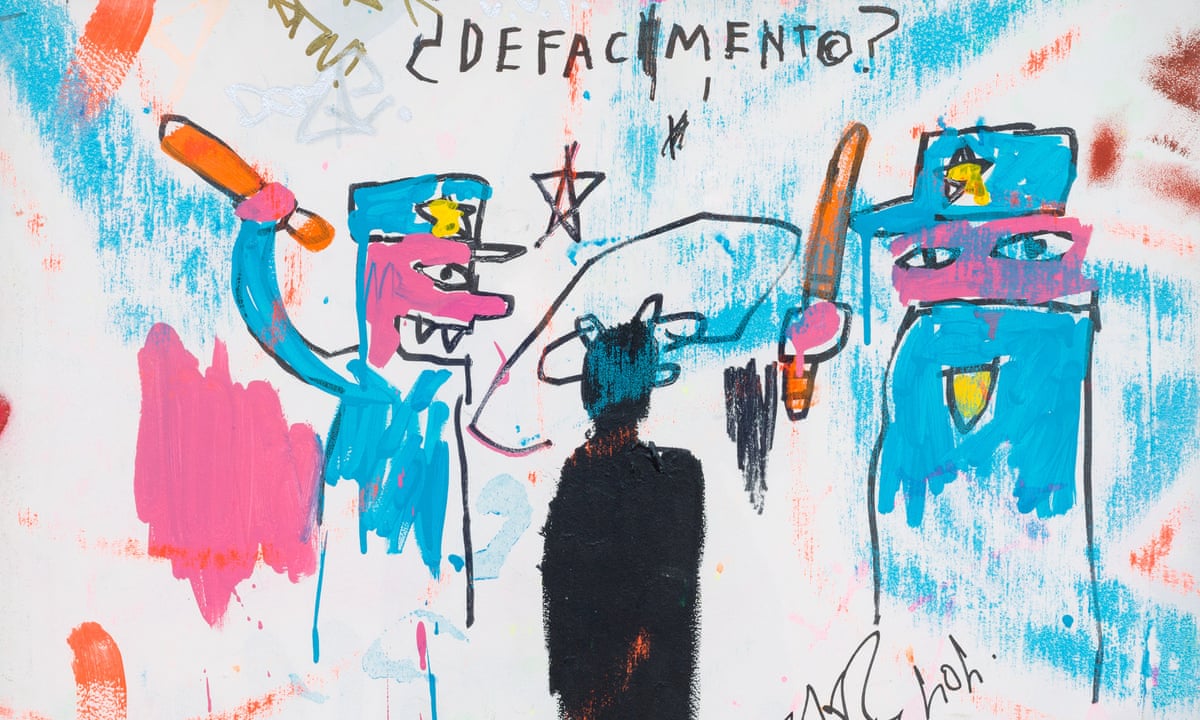 ¿DEFACIMENT©?